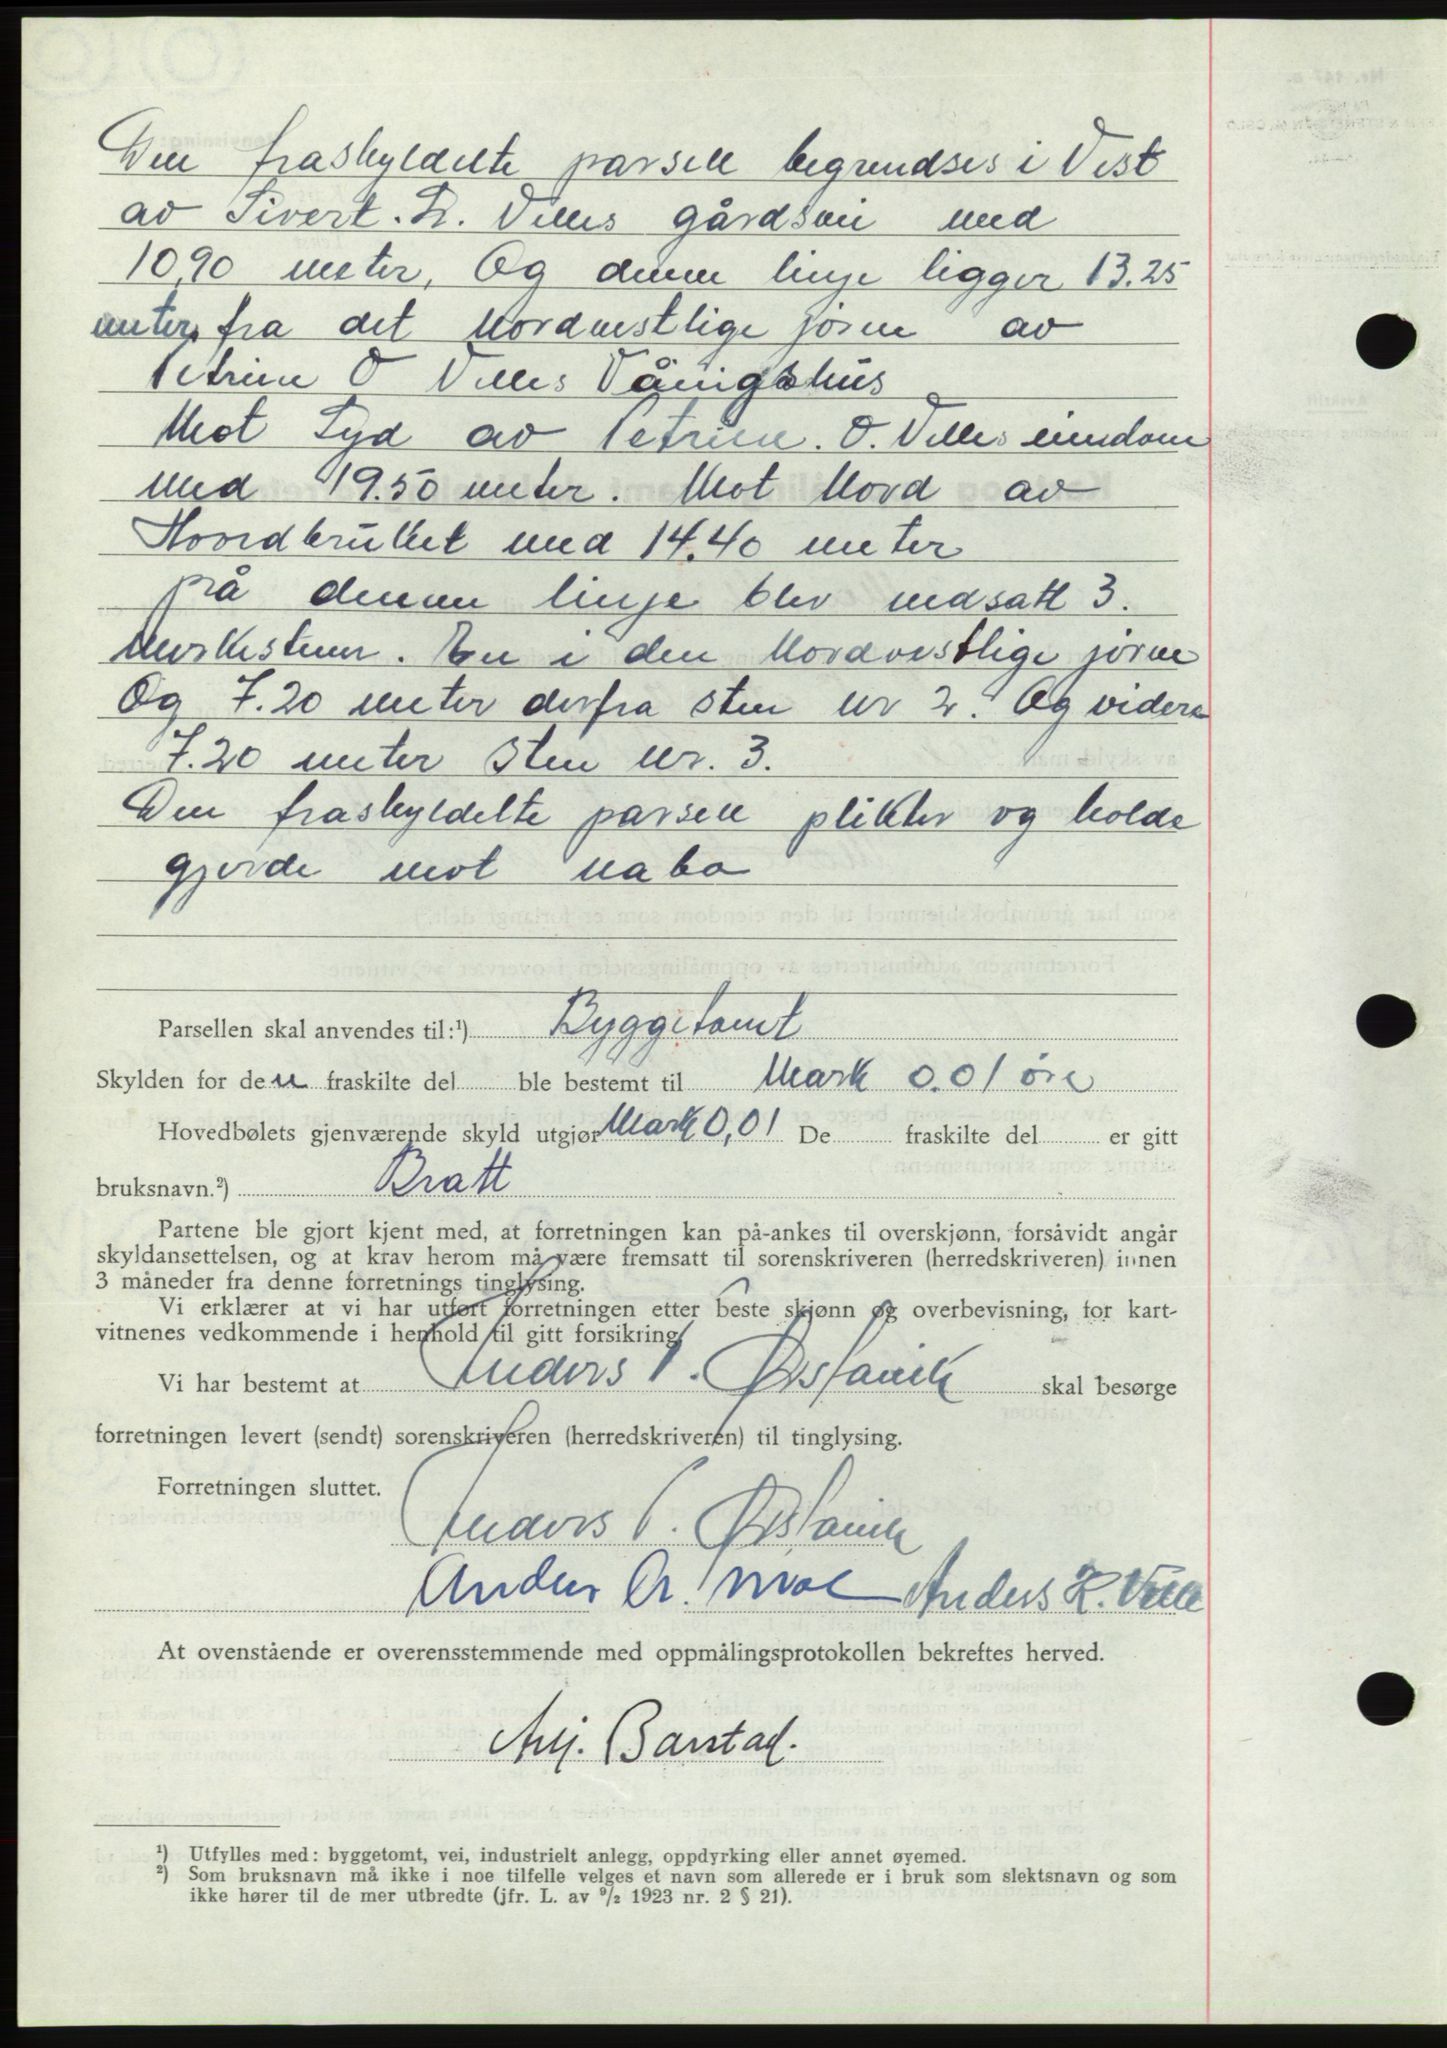 Den fraskyldelte parsell begrendses i Vest
av Sivert. L. Velles gårdsvei med
10,90 meter, Og denne linje ligger 13.25
meter, fra det Nordvestlige jörne av
Petrine O Velles Våningshus
Mot Syd av Petrine. O. Velles eiendom
med 19.50 meter. Mot Nord av
Hovedbruket med 14.40 meter
på denne linje blev nedsatt 3.
Merkestener. En i den Nordvestlige jörne
Og 7.20 meter derfra sten nr 2. Og videre
7.20 meter sten nr. 3.
Den fraskyldelte parsell plikter og holde
gjerde mot nabo
Parsellen skal anvendes til:¹) Byggetomt
Skylden for den fraskilte del ble bestemt til Mark 0.01 öre
Hovedbølets gjenværende skyld utgjør Mark 0,01 De fraskilte del er gitt
bruksnavn.²) Bratt
Partene ble gjort kjent med, at forretningen kan på-ankes til overskjønn, forsåvidt angår
skyldansettelsen, og at krav herom må være fremsatt til sorenskriveren (herredskriveren) innen
3 måneder fra denne forretnings tinglysing.
Vi erklærer at vi har utført forretningen etter beste skjønn og overbevisning, for kart-
vitnenes vedkommende i henhold til gitt forsikring.
Vi har bestemt at Anders P. Ørstavik skal besørge
forretningen levert (sendt) sorenskriveren (herredskriveren) til tinglysing.
Forretningen sluttet.
Anders P. Ørstavik
Anders A. Anders K. Velle
At ovenstående er overensstemmende med oppmålingsprotokollen bekreftes herved.
Barstad.
¹) Utfylles med: byggetomt, vei, industrielt anlegg, oppdyrking eller annet øyemed.
²) Som bruksnavn må ikke i noe tilfelle velges et navn som allerede er i bruk som slektsnavn og som
ikke hører til de mer utbredte (jfr. L. av ⁹/₂ 1923 nr. 2 § 21).